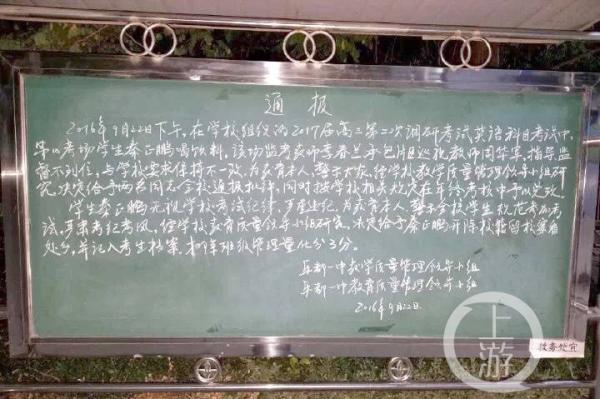 通报
2016年9月22日下午,在学校组织的2017届高三第二次调研考试英语科目考试中,
第11考场学生秦正鹏喝饮料,该场监考教师李春兰、承包片区巡视教师周华军,指导监
督不到位,与学校要求保持不一致,为教育本人,警示大众,经学校教学质量管理领导小组研
究,决定给予两名同志全校通报批评,同时按学校相关规定在年终考核中予以兑现。
学生秦正鹏无视学校考试纪律,为教育本人,警示全校学生,规范参加考
试,严肃考纪考风,经学校教育质量领导小组研究,决定给予秦正鹏开除校籍留校察看
处分,并记入考生档案,扣9年班级管理量化分3分。
奉节一中教学质量管理领导小组
奉节一中教育质量管理领导小组
2016年9月22日
教务处宣
上游